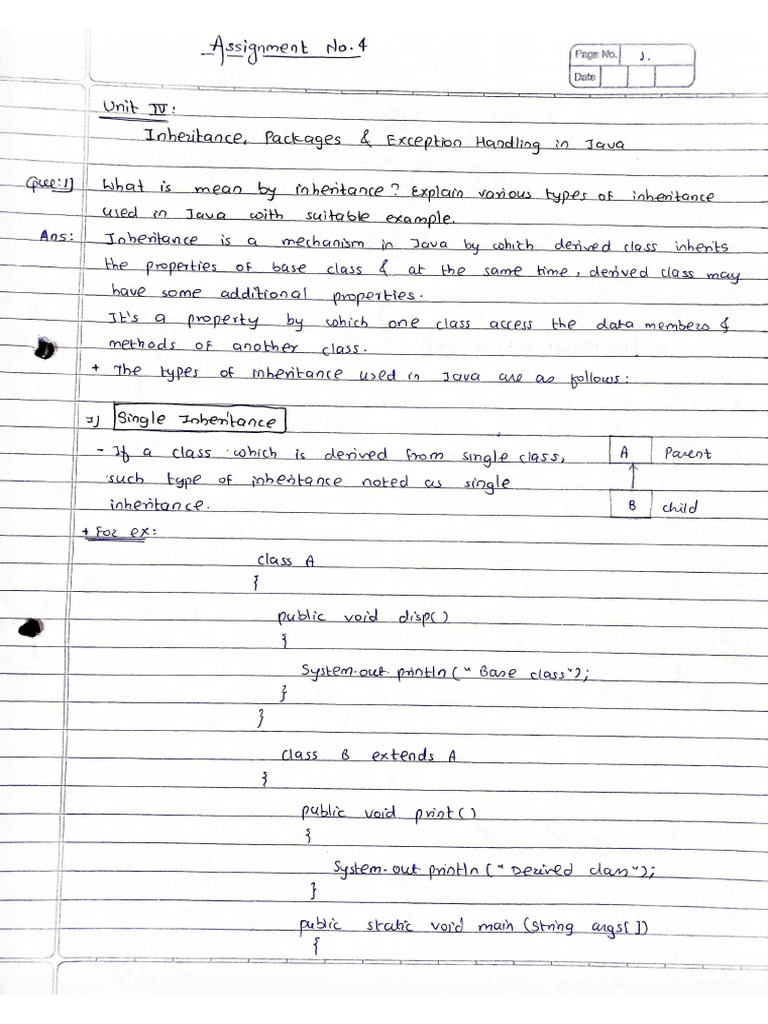 Assignment No. 4
Page No. 1.
Date
Unit IV:
Inheritance, Packages & Exception Handling in Java
Que:1] What is mean by inheritance? Explain various types of inheritance
used in Java with suitable example.
Ans: Inheritance is a mechanism in Java by which derived class inherits
the properties of base class & at the same time, derived class may
have some additional properties.
It's a property by which one class access the data members &
methods of another class.
+ The types of inheritance used in Java are as follows:
I) Single Inheritance
- If a class which is derived from single class,
such type of inheritance noted as single
inheritance.
A Parent
B child
+ For ex:
class A
{
public void disp()
{
System.out.println("Base class");
}
}
class B extends A
{
public void print()
{
System.out println("Derived class");
}
public static void main (String args[])
{